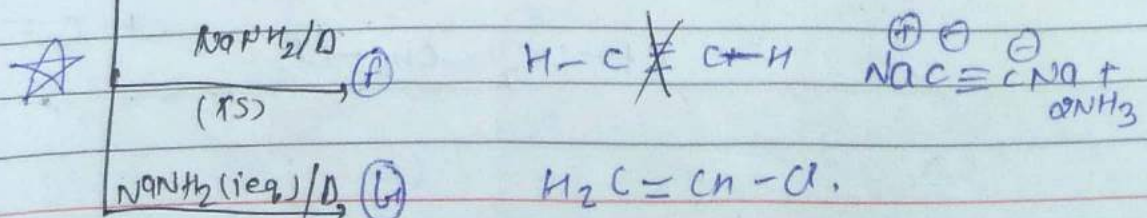 NaNH2/Δ (F) H-C≡C-H Na⊕ ⊖C≡C⊖Na +
(XS) 2NH3
NaNH2(1eq)/Δ (G) H2C=CH-Cl.